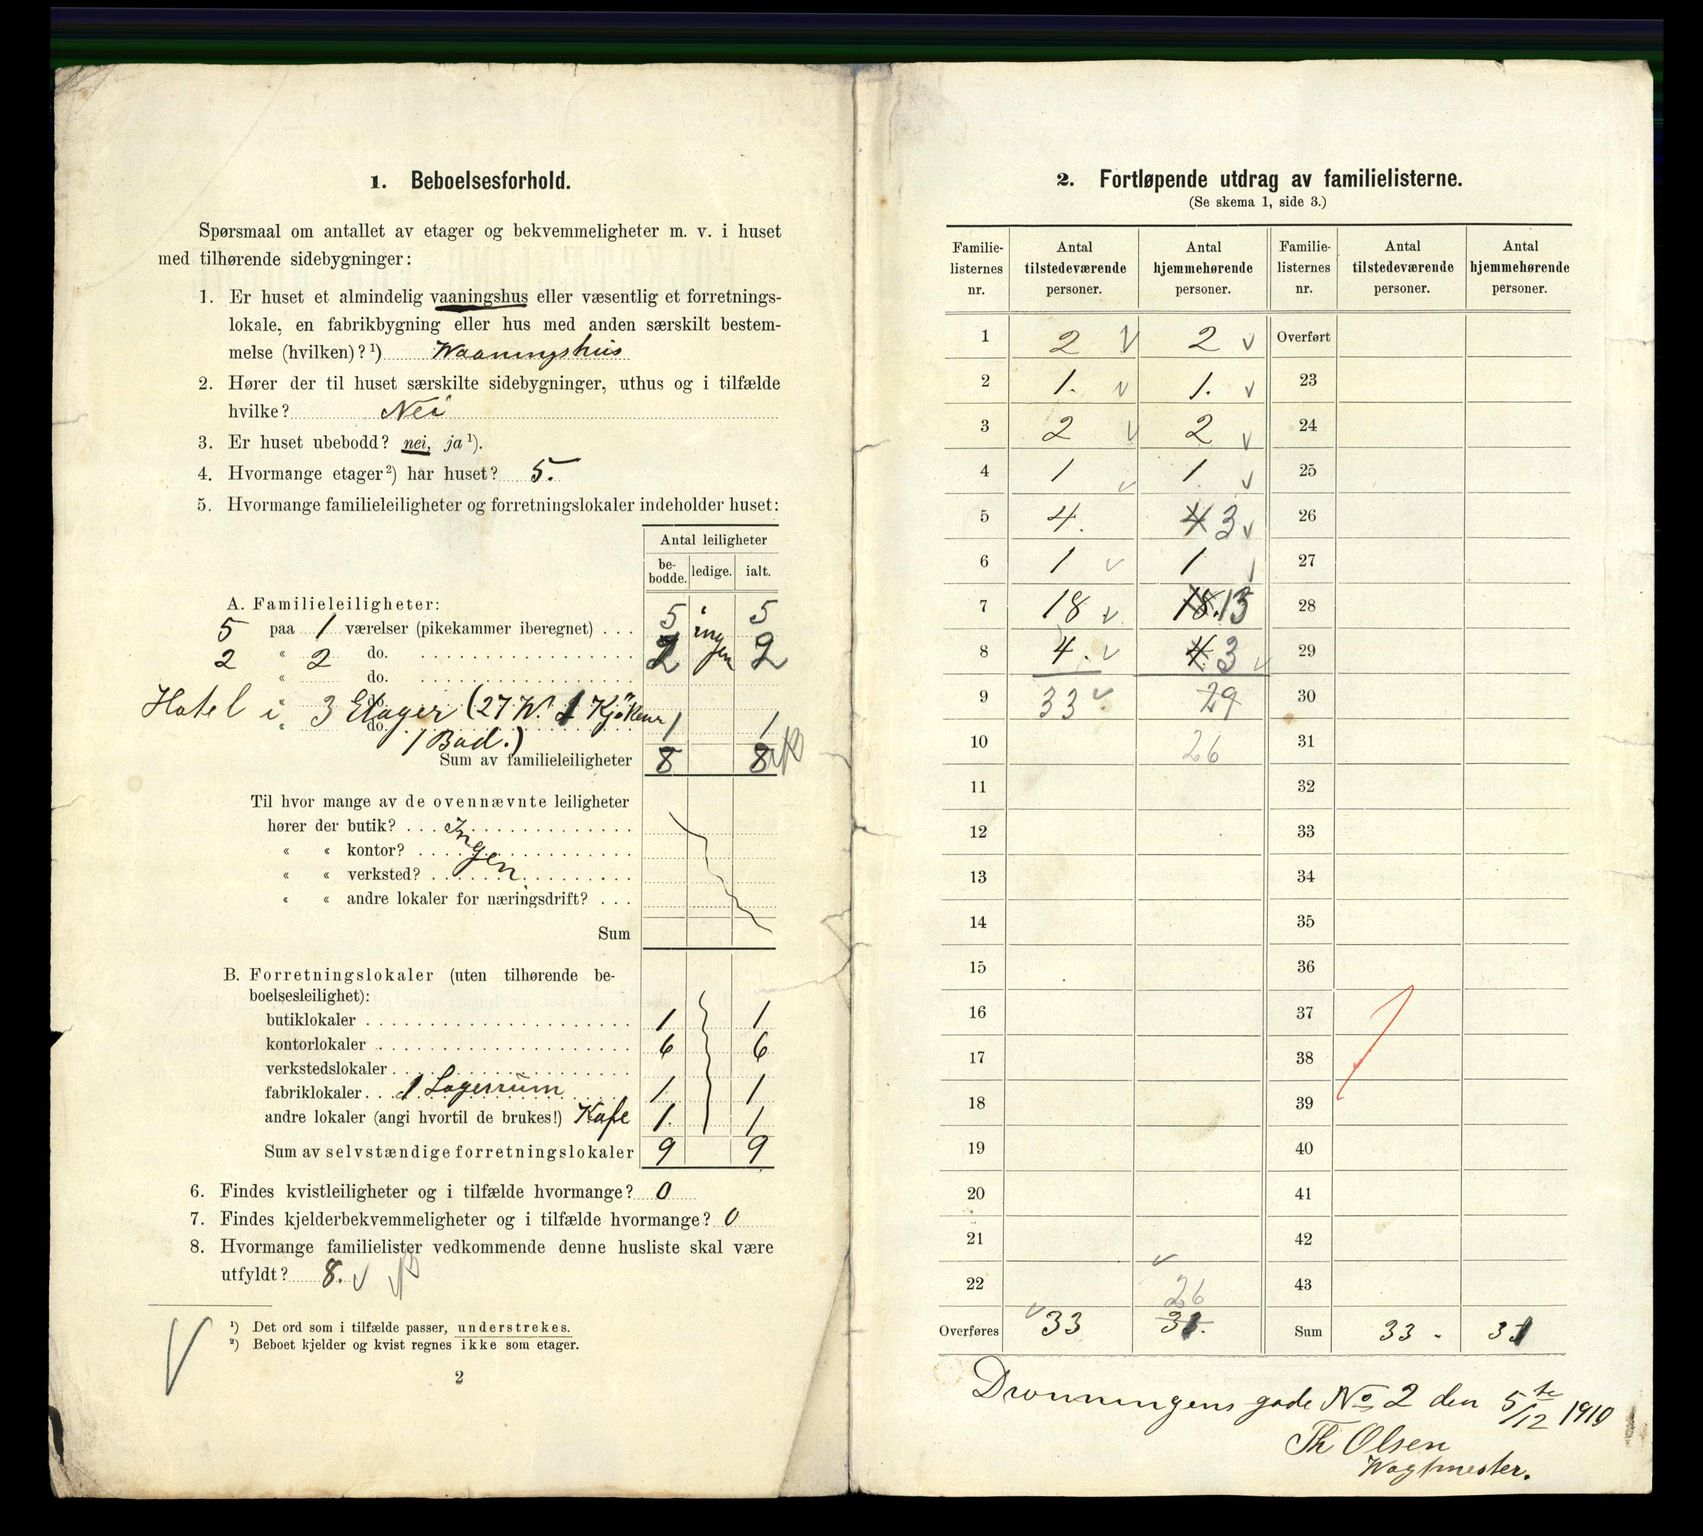 1. Beboelsesforhold.
Spørsmaal om antallet av etager og bekvemmeligheter m. v. i huset
med tilhørende sidebygninger:
1. Er huset et almindelig vaaningshus eller væsentlig et forretnings-
lokale, en fabrikbygning eller hus med anden særskilt bestem-
melse (hvilken)?¹) Waaningshus
2. Hører der til huset særskilte sidebygninger, uthus og i tilfælde
hvilke? Nei
3. Er huset ubebodd? nei, ja ¹).
4. Hvormange etager²) har huset? 5.
5. Hvormange familieleiligheter og forretningslokaler indeholder huset:
Antal leiligheter
be-bodde. ledige. ialt.
A. Familieleiligheter:
5 paa 1 værelser (pikekammer iberegnet) . . . 5 ingen 5
2 « 2 do. 2 2
« do.
Hotel i 3 Etager (27 W. 1 Kjøken
« do. 1 1
1 Bad.)
Sum av familieleiligheter 8 8
Til hvor mange av de ovennævnte leiligheter
hører der butik? . . . Ingen
« « kontor?
« « verksted?
« « andre lokaler for næringsdrift? . . .
Sum
B. Forretningslokaler (uten tilhørende be-
boelsesleilighet):
butiklokaler 1 1
kontorlokaler 6 6
verkstedslokaler
fabriklokaler . . 1 Lagerrum 1 1
andre lokaler (angi hvortil de brukes!) Kafe 1. 1
Sum av selvstændige forretningslokaler 9 9
6. Findes kvistleiligheter og i tilfælde hvormange? 0
7. Findes kjelderbekvemmeligheter og i tilfælde hvormange? 0
8. Hvormange familielister vedkommende denne husliste skal være
utfyldt? 8. v
¹) Det ord som i tilfælde passer, understrekes.
²) Beboet kjelder og kvist regnes ikke som etager.
2
2. Fortløpende utdrag av familielisterne.
(Se skema 1, side 3.)
Familie-listernes nr. Antal tilstedeværende personer. Antal hjemmehørende personer. Familie-listernes nr. Antal tilstedeværende personer. Antal hjemmehørende personer.
1 2 v 2 v Overført
2 1. v 1. v 23
3 2 v 2 v 24
4 1 v 1. v 25
5 4. 4 3 v 26
6 1 v 1 v 27
7 18 v 18. 13 28
8 4. v 4. 3 v 29
9 33 v 29 30
10 26 31
11 32
12 33
13 34
14 35
15 36
16 37
17 38
18 39
19 40
20 41
21 42
22 26 43
Overføres 33 31. Sum 33 - 31
Dronningens gade No 2 den 5te/12 1910
Th Olsen
Wagtmester.